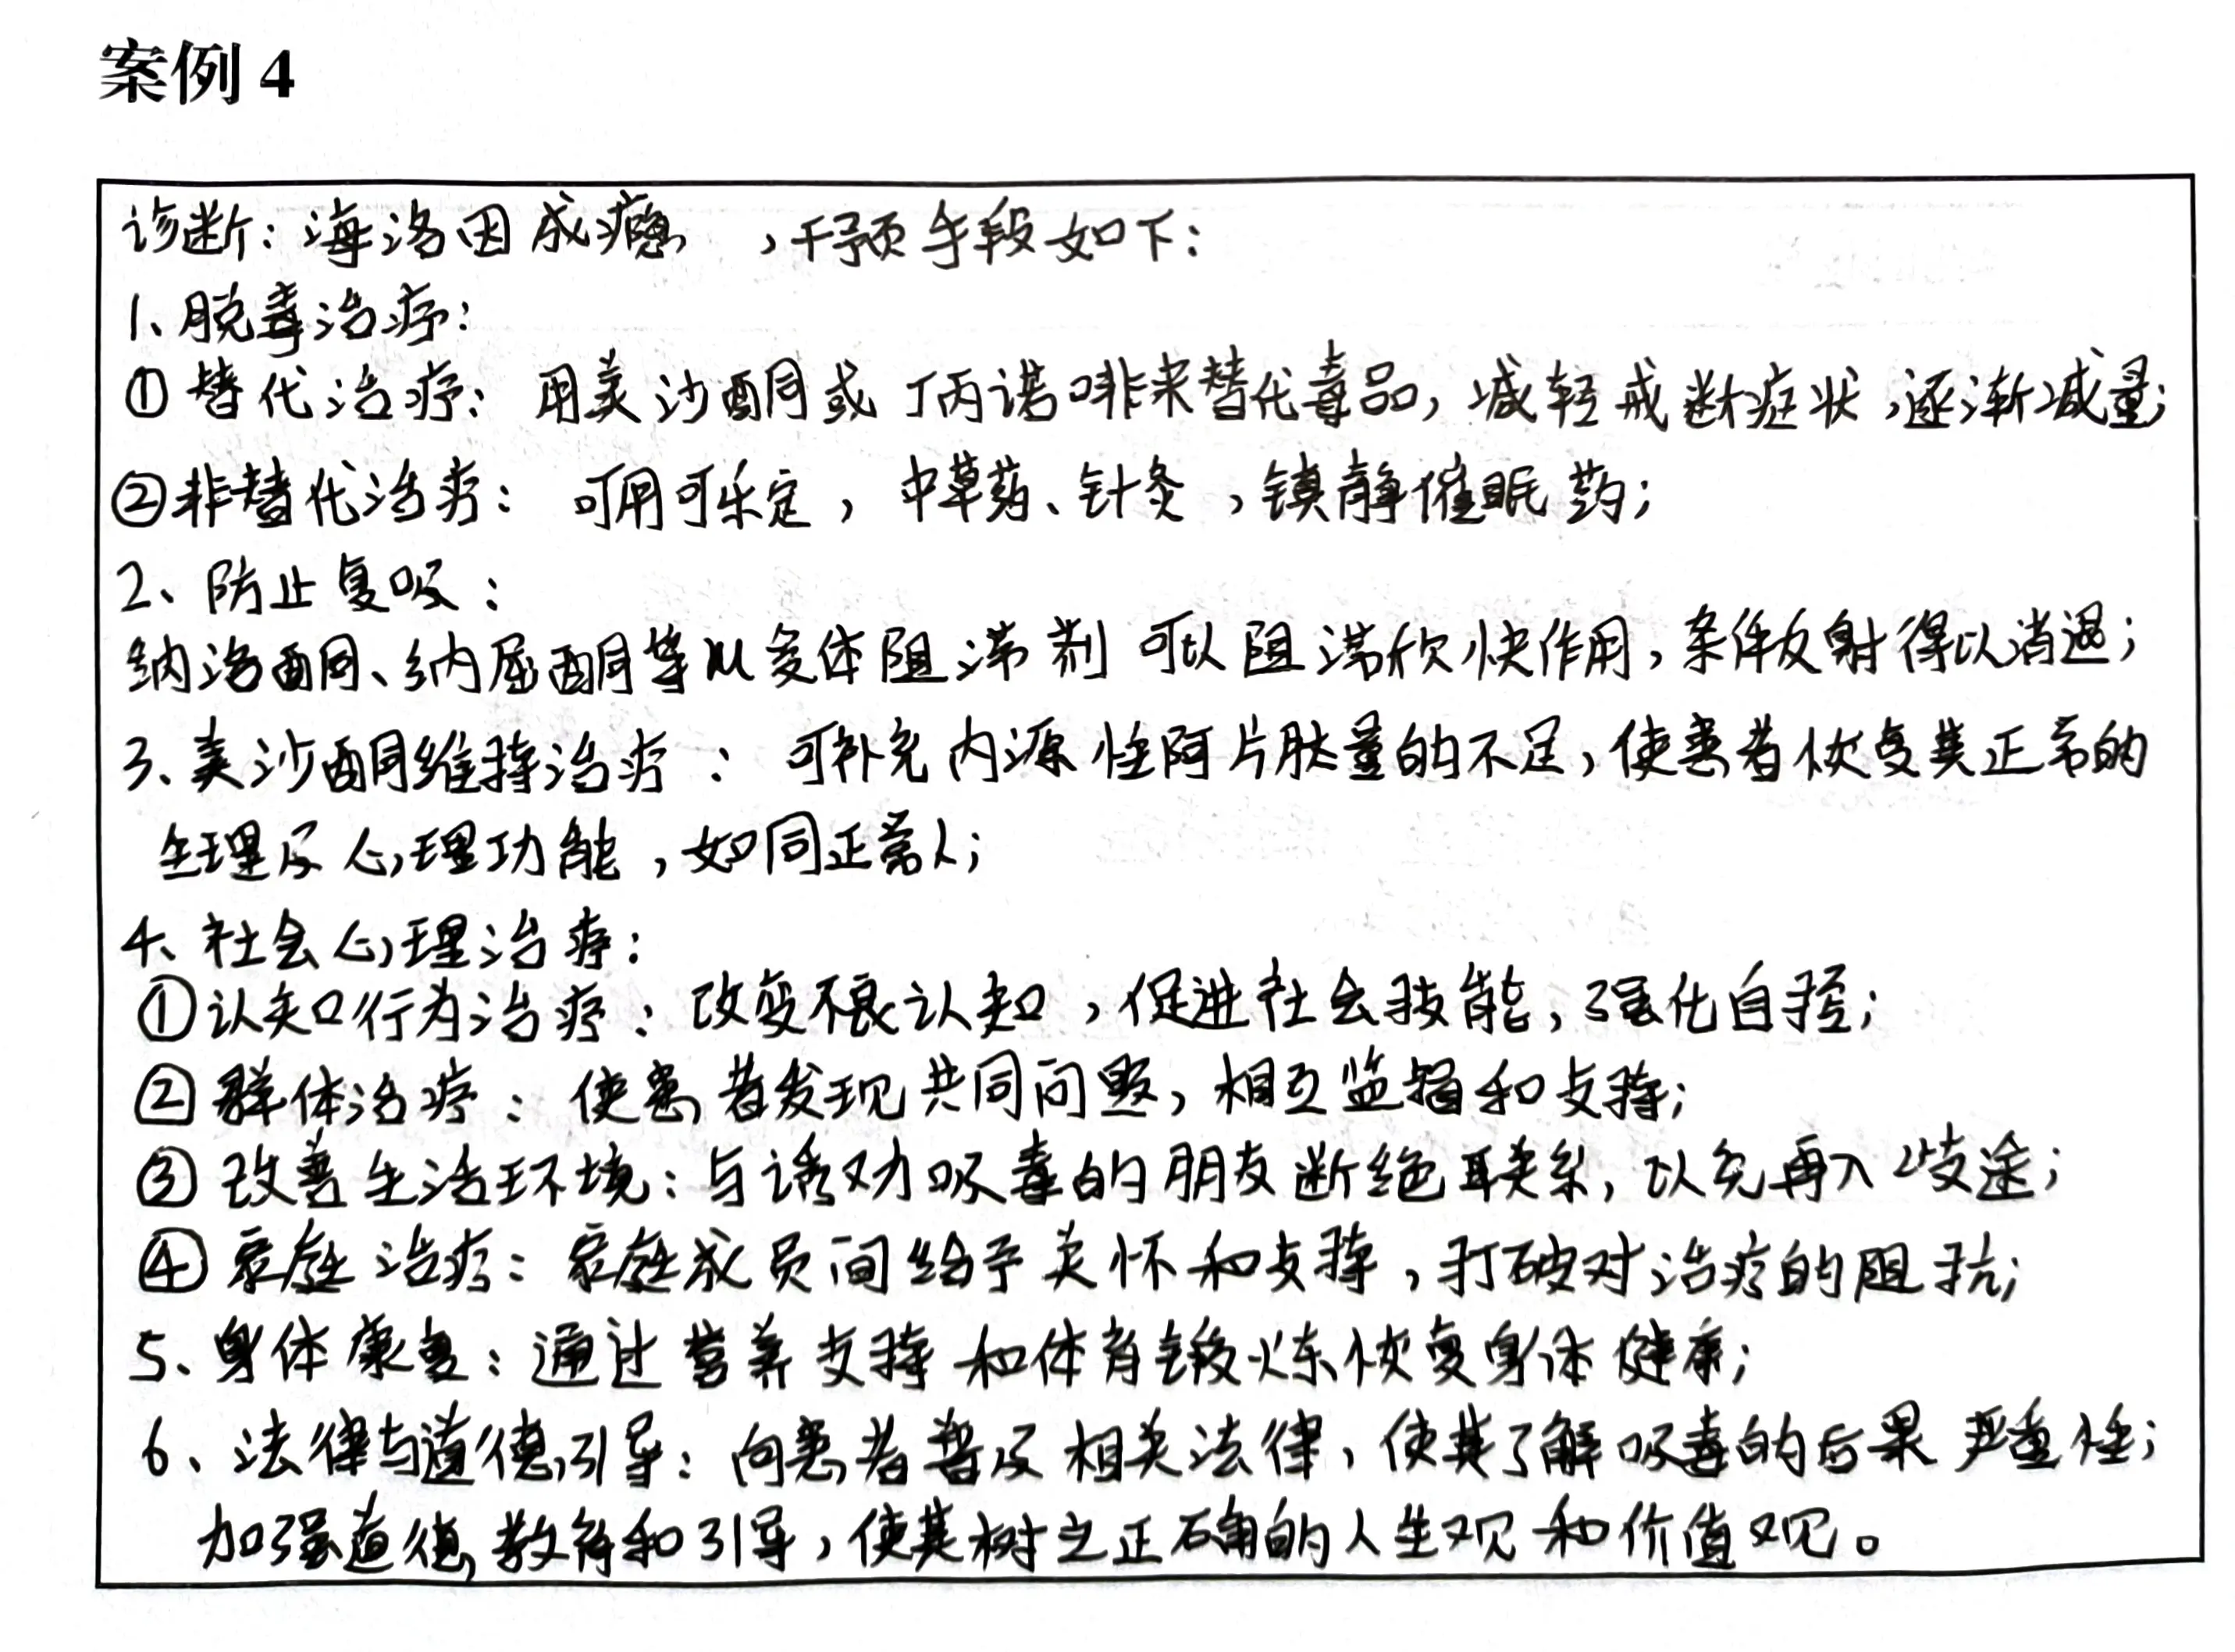 案例 4
诊断：海洛因成瘾，干预手段如下：
1、脱毒治疗：
①替代治疗：用美沙酮或丁丙诺啡来替代毒品，减轻戒断症状，逐渐减量；
②非替代治疗：可用可乐定，中草药、针灸，镇静催眠药；
2、防止复吸：
纳洛酮、纳屈酮等从受体阻滞剂可以阻滞欣快作用，条件反射得以消退；
3、美沙酮维持治疗：可补充内源性阿片肽量的不足，使患者恢复其正常的
生理及心理功能，如同正常人；
4、社会心理治疗：
①认知行为治疗：改变不良认知，促进社会技能，强化自控；
②群体治疗：使患者发现共同问题，相互监督和支持；
③改善生活环境：与诱劝吸毒的朋友断绝联系，以免再入歧途；
④家庭治疗：家庭成员间给予关怀和支持，打破对治疗的阻抗；
5、身体康复：通过营养支持和体育锻炼恢复身体健康；
6、法律与道德引导：向患者普及相关法律，使其了解吸毒的后果严重性；
加强道德教育和引导，使其树立正确的人生观和价值观。